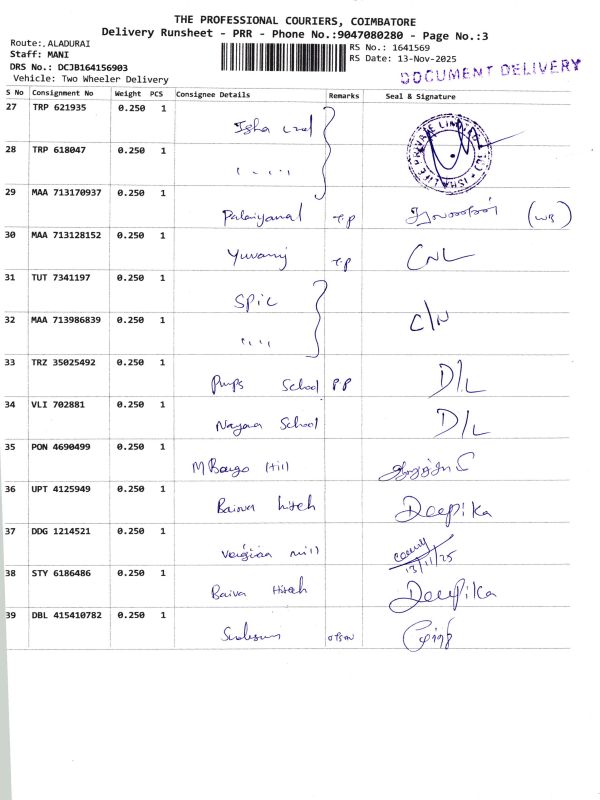 THE PROFESSIONAL COURIERS, COIMBATORE
Delivery Runsheet - PRR - Phone No.:9047080280 - Page No.:3
Route:.ALADURAI
RS No.: 1641569
Staff: MANI
RS Date: 13-Nov-2025
DRS No.: DCJB164156903
Vehicle: Two Wheeler Delivery
DOCUMENT DELIVERY
S No Consignment No Weight PCS Consignee Details Remarks Seal & Signature
27 TRP 621935 0.250 1 Isha
28 TRP 618047 0.250 1 " " " "
29 MAA 713170937 0.250 1 Palaiyanal T.P
30 MAA 713128152 0.250 1 Yuvaraj T.P CNL
31 TUT 7341197 0.250 1 SPIC
32 MAA 713986839 0.250 1 " " " " C/N
33 TRZ 35025492 0.250 1 Pmps School PP D/L
34 VLI 702881 0.250 1 School D/L
35 PON 4690499 0.250 1 Hill
36 UPT 4125949 0.250 1 hitch Deepika
37 DDG 1214521 0.250 1 mill 13/11/25
38 STY 6186486 0.250 1 Hitech Deepika
39 DBL 415410782 0.250 1